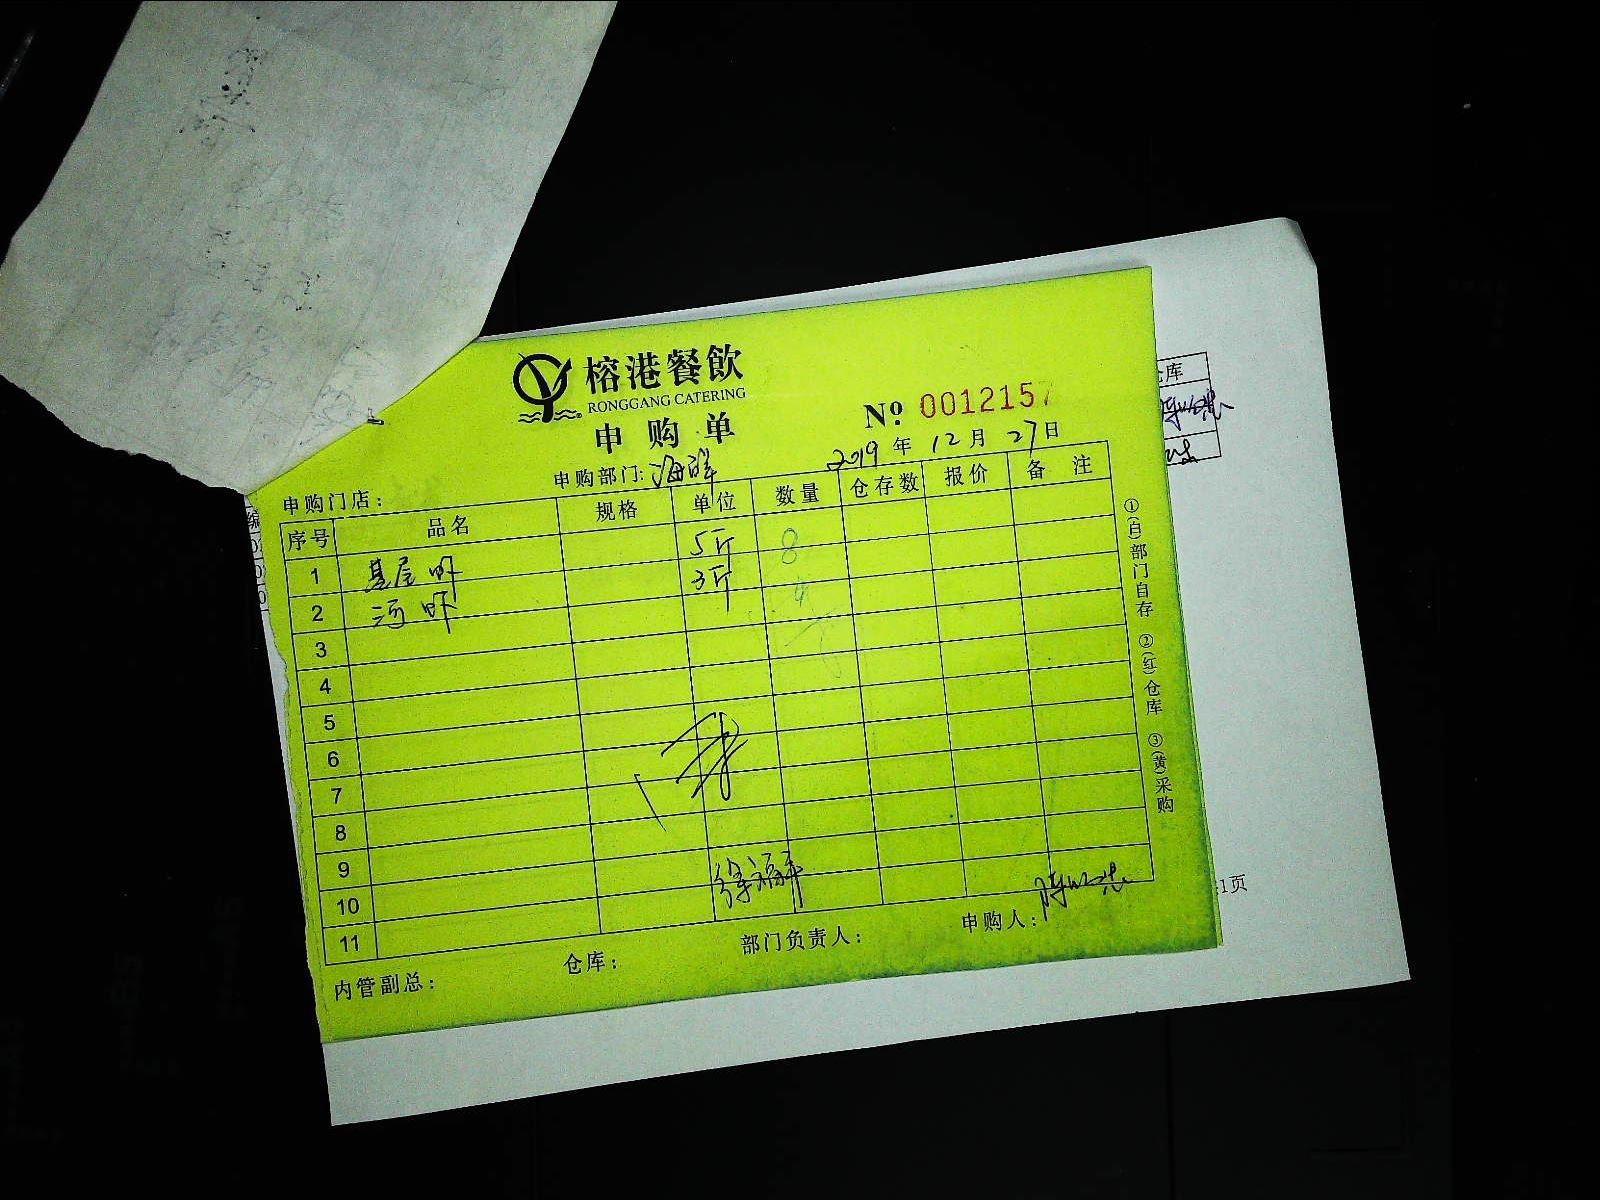 榕港餐飲
RONGGANG CATERING
申购单
№ 0012157
2019年12月27日
申购门店： 申购部门: 海鲜
序号 品名 规格 单位 数量 仓存数 报价 备注
1 基尾虾 5斤 8
2 河虾 3斤 4
3
4
5
6
7
8
9
10
11
徐福平
内管副总： 仓库： 部门负责人： 申购人：
①(白)部门自存 ②(红)仓库 ③(黄)采购
库
1页